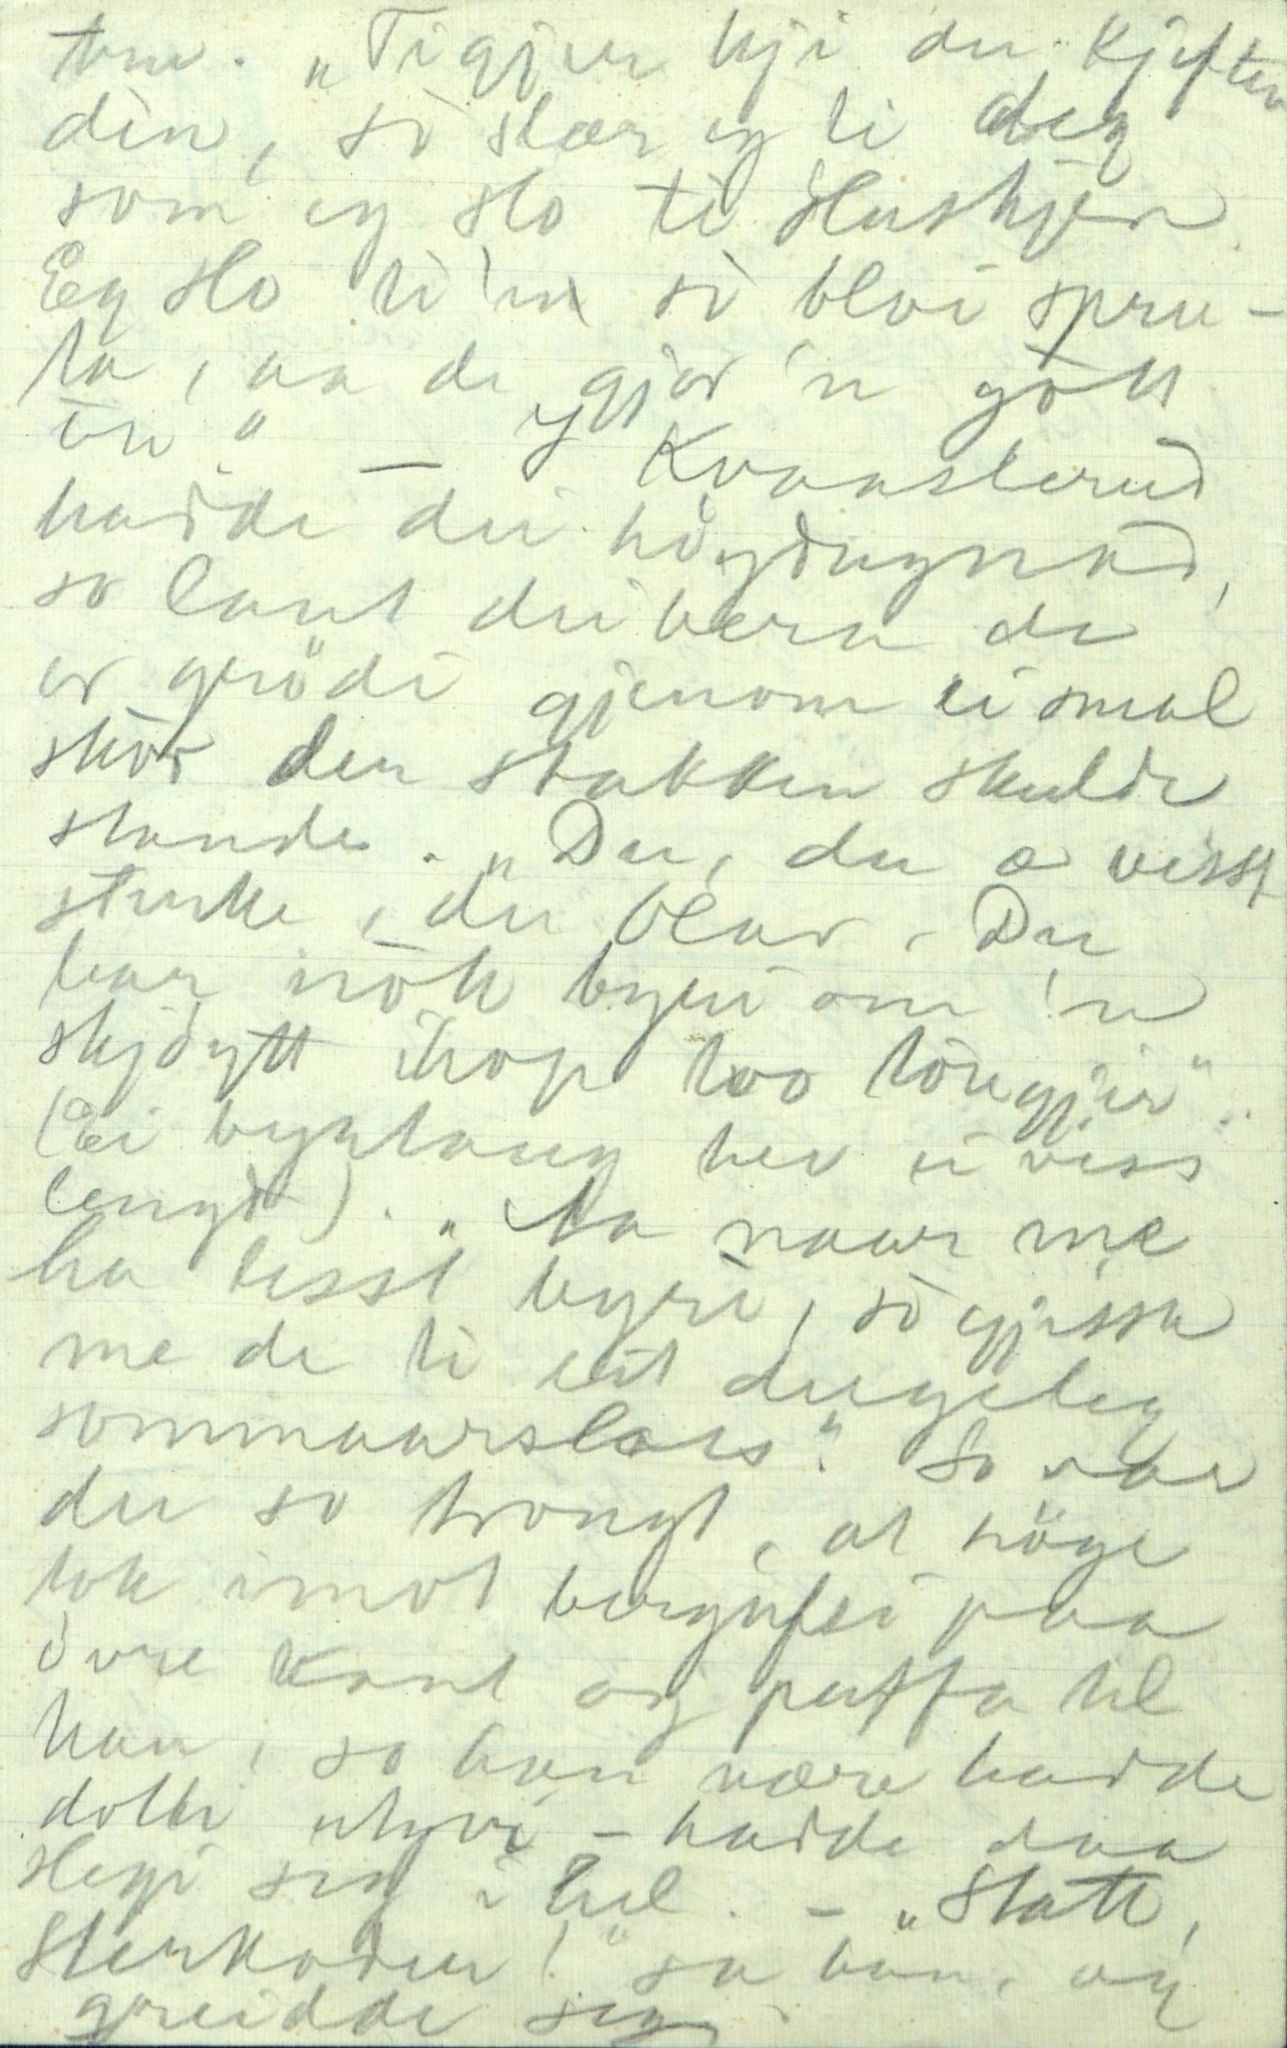 tom. „Tigjer kji du kjeften
din, so slær eg ti deg
som eg slo ti Huskjen.
Eg slo ti 'n so bloi spru-
ta, aa de gjor 'n gott
— I Kvaaslerud
hadde dei höydugnad,
so laut dei bera de
or grödi gjenom ei smal
skor der stakken skulde
stande. „Du, du æ visst
sterke, du Olav. Du
bær nok byri om 'n
skjöytt ihop too töregjir".
(Ei byrtaug hev ei viss
lengd). „Aa naar me
ha lesst byri, so gjessa
me de ti eit dugeleg
sommaarslass". So var
der so trongt, at nöge
tok imot berg ufsi paa
övre kant og puffa til
han, so han nære hadde
dotti utyvi – hadde daa
slegi seg i hel. – „Statt,
Sterkoden!" sa han, og
greidde seg